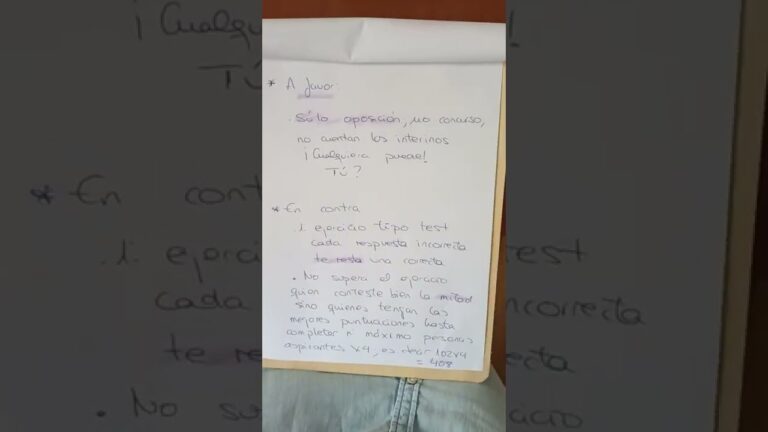 * A favor:
. Sólo oposición, no concurso,
no cuentan los interinos
¡Cualquiera puede!
Tú?
* En contra
1. ejercicio tipo test
cada respuesta incorrecta
te resta una correcta
. No supera el ejercicio
quien conteste bien la mitad
sino quienes tengan las
mejores puntuaciones hasta
completar nº máximo personas
aspirantes x4, es decir 102x4
= 408